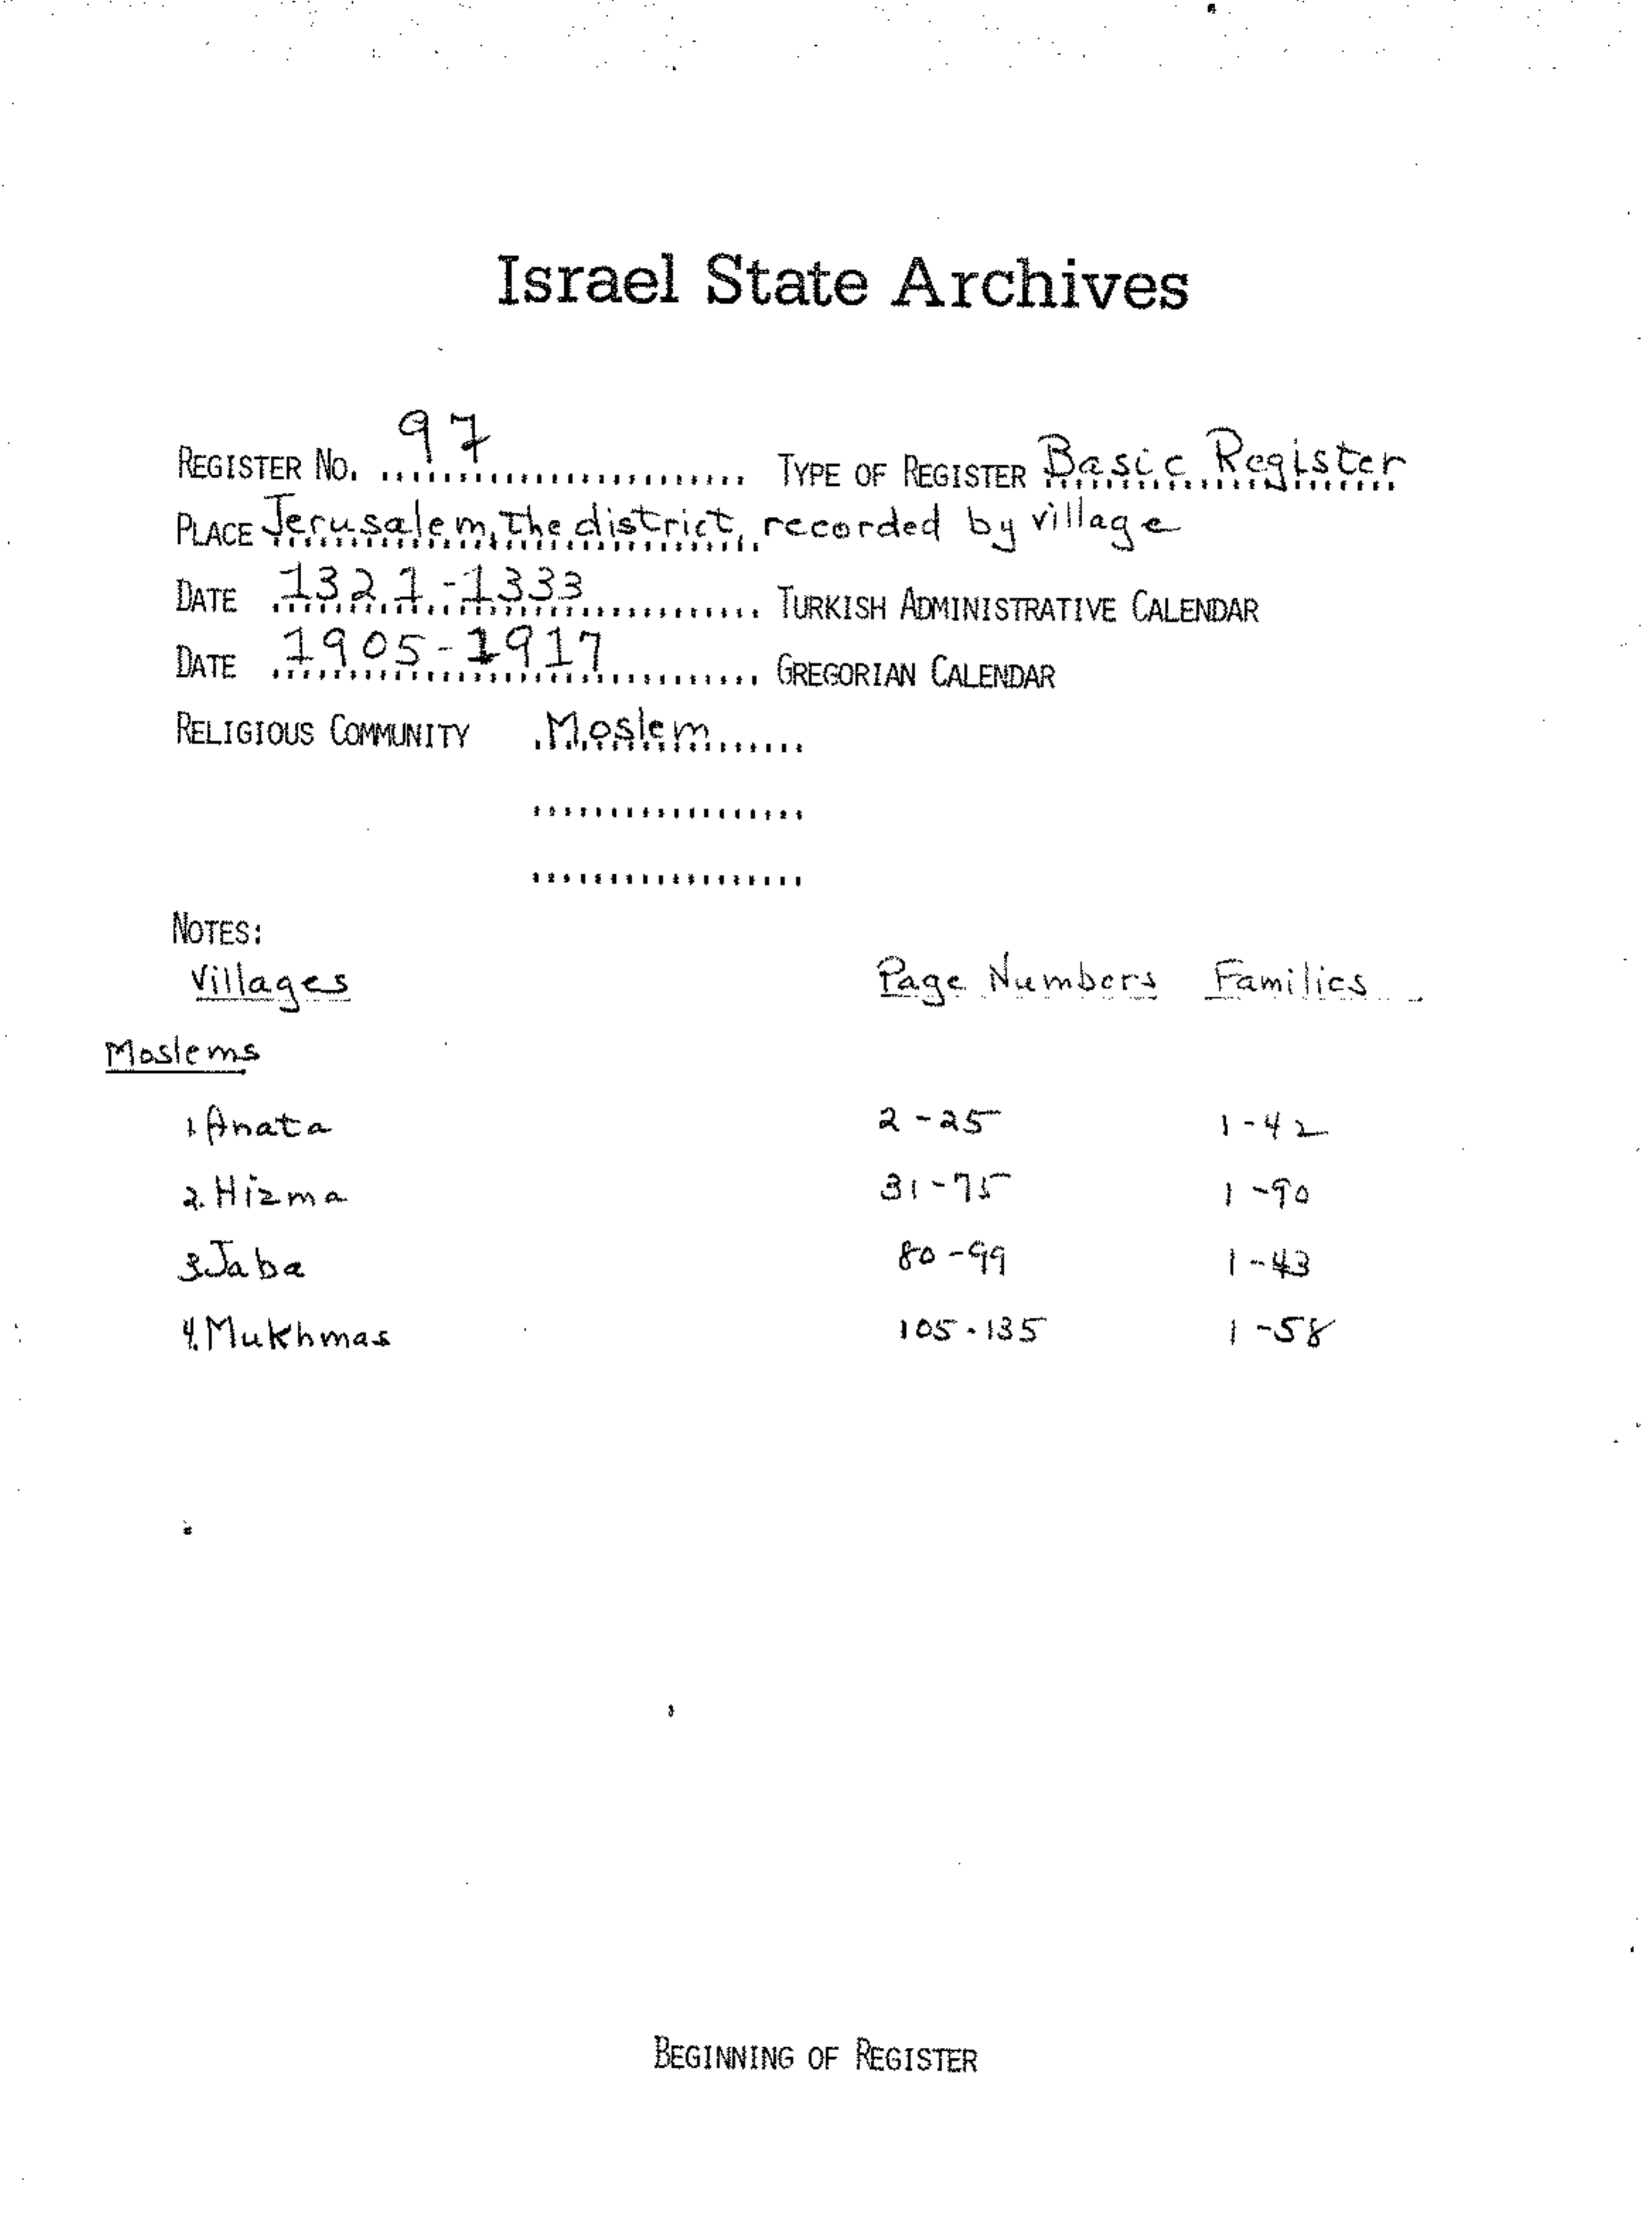 Israel State Archives
REGISTER NO. 97 TYPE OF REGISTER Basic Register
PLACE Jerusalem, the district, recorded by village
DATE 1321-1333 TURKISH ADMINISTRATIVE CALENDAR
DATE 1905-1917 GREGORIAN CALENDAR
RELIGIOUS COMMUNITY Moslem
NOTES:
Villages Page Numbers Families
Moslems
1. Anata 2-25 1-42
2. Hizma 31-75 1-90
3. Jaba 80-99 1-43
4. Mukhmas 105-135 1-58
BEGINNING OF REGISTER